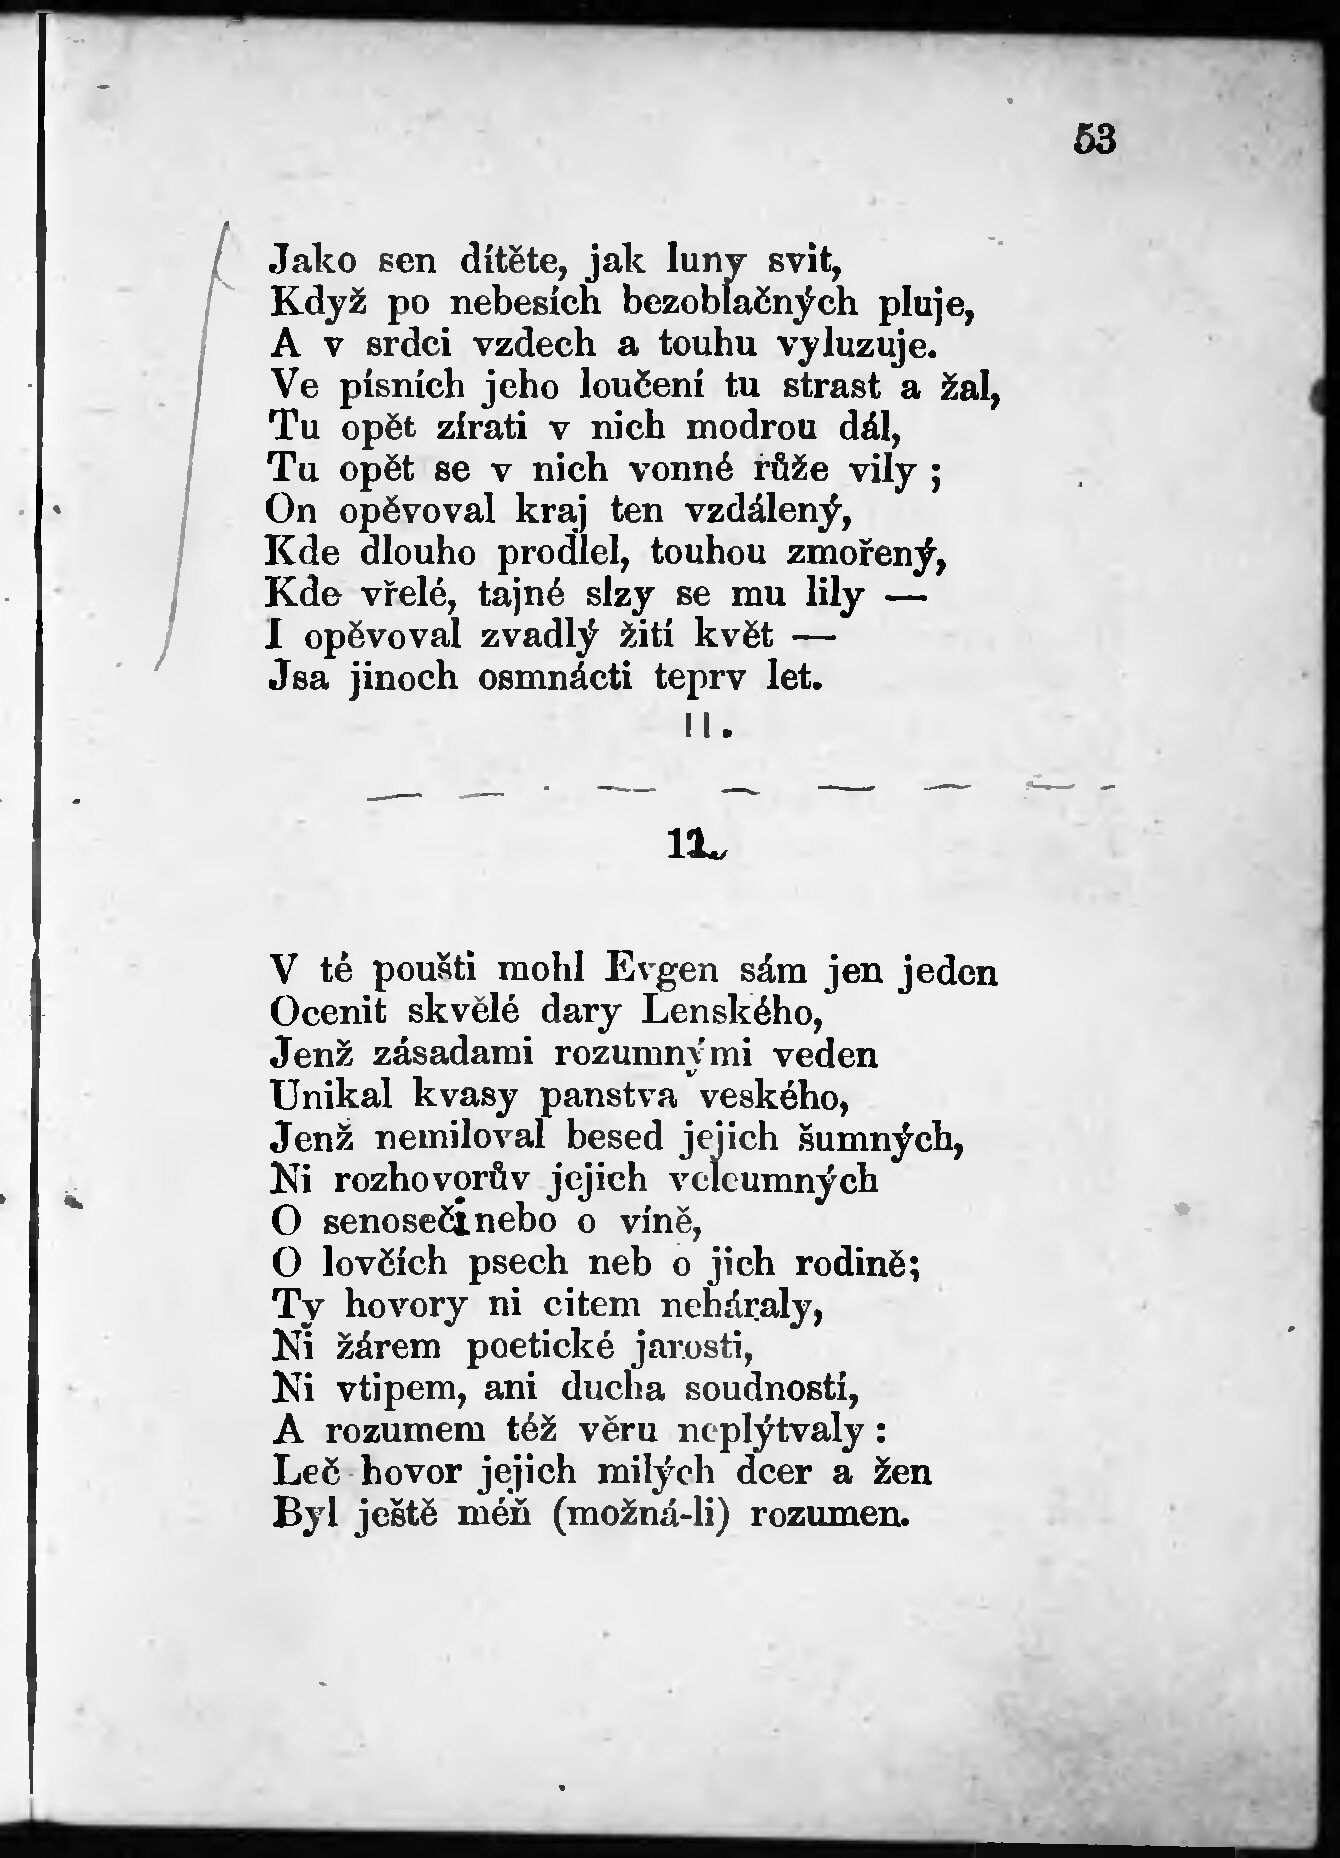 53
Jako sen dítěte, jak luny svit,
Když po nebesích bezoblačných pluje,
A v srdci vzdech a touhu vyluzuje.
Ve písních jeho loučení tu strast a žal,
Tu opět zírati v nich modrou dál,
Tu opět se v nich vonné růže vily ;
On opěvoval kraj ten vzdálený,
Kde dlouho prodlel, touhou zmořený,
Kde vřelé, tajné slzy se mu lily —
I opěvoval zvadlý žití květ —
Jsa jinoch osmnácti teprv let.
11.
— — - — — — — — -
12.
V té poušti mohl Evgen sám jen jeden
Ocenit skvělé dary Lenského,
Jenž zásadami rozumnými veden
Unikal kvasy panstva veského,
Jenž nemiloval besed jejich šumných,
Ni rozhovorův jejich veleumných
O senoseči nebo o víně,
O lovčích psech neb o jich rodině;
Ty hovory ni citem neháraly,
Ni žárem poetické jarosti,
Ni vtipem, ani ducha soudností,
A rozumem též věru neplýtvaly :
Leč hovor jejich milých dcer a žen
Byl ještě méň (možná-li) rozumen.